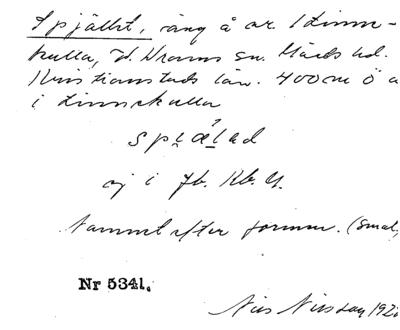 Spjället, äng å nr. 1 Linne-
kulla, N. Vrams sn. Luggude hd.
Kristianstads län. 400 m Ö o
i Linnekulla
spi̯ǽlad
ej i Jb. Kb. G.
Namnet efter formen. (Smal,
Nr 5341.
Nils Nilsson 192